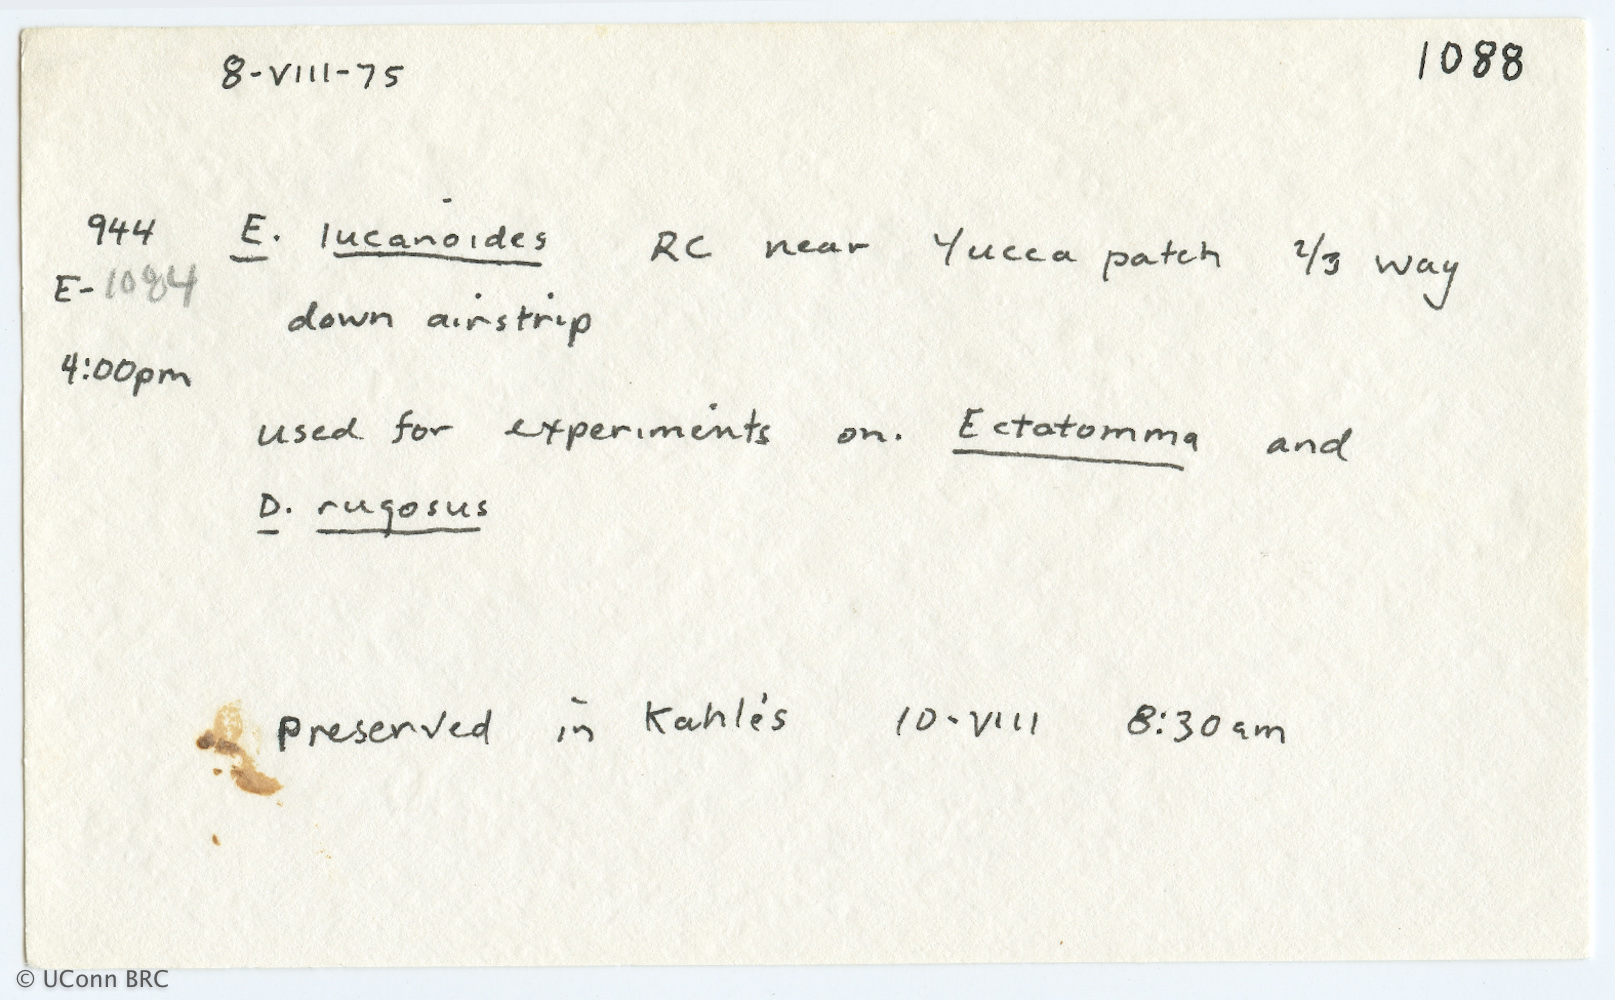 8-VIII-75
1088
944 E. lucanoides RC near Yucca patch 2/3 way
E-1084
down airstrip
4:00pm
used for experiments on. Ectatomma and
D. rugosus
preserved in Kahle's 10-VIII 8:30am
© UConn BRC